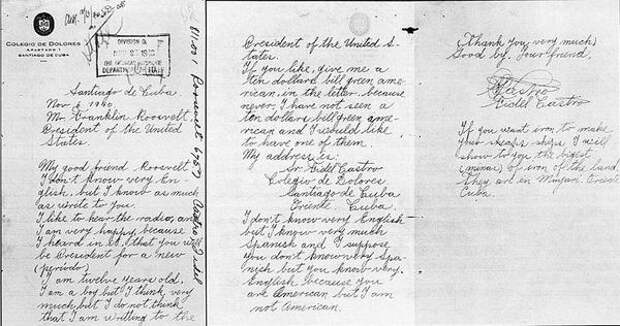 COLEGIO DE DOLORES
APARTADO 1
SANTIAGO DE CUBA
DIVISION
DEPARTMENT OF STATE
Santiago de Cuba
Nov 6 1940
Mr. Franklin Roosevelt,
President of the United
States.
My good friend Roosevelt
I don't know very En-
glish, but I know as much
as write to you.
I like to hear the radio, and
I am very happy, because
I heard in it, that you will
be President for a new
(periodo)
I am twelve years old.
I am a boy but I think very
much but I do not think
that I am writting to the
President of the United S-
tates.
If you like, give me a
ten dollars bill green ame-
rican, in the letter, because
never, I have not seen a
ten dollars bill green ame-
rican and I would like
to have one of them.
My address is:
Sr. Fidel Castro
Colegio de Dolores
Santiago de Cuba
Oriente Cuba.
I don't know very English
but I know very much
Spanish and I suppose
you don't know very Spa-
nish but you know very
English because you
are American but I am
not American.
(Thank you very much)
Good by. Your friend,
Castro
Fidel Castro
If you want iron to make
your ships I will
show to you the bigest
(minas) of iron of the land.
They are in Mayari Oriente
Cuba.